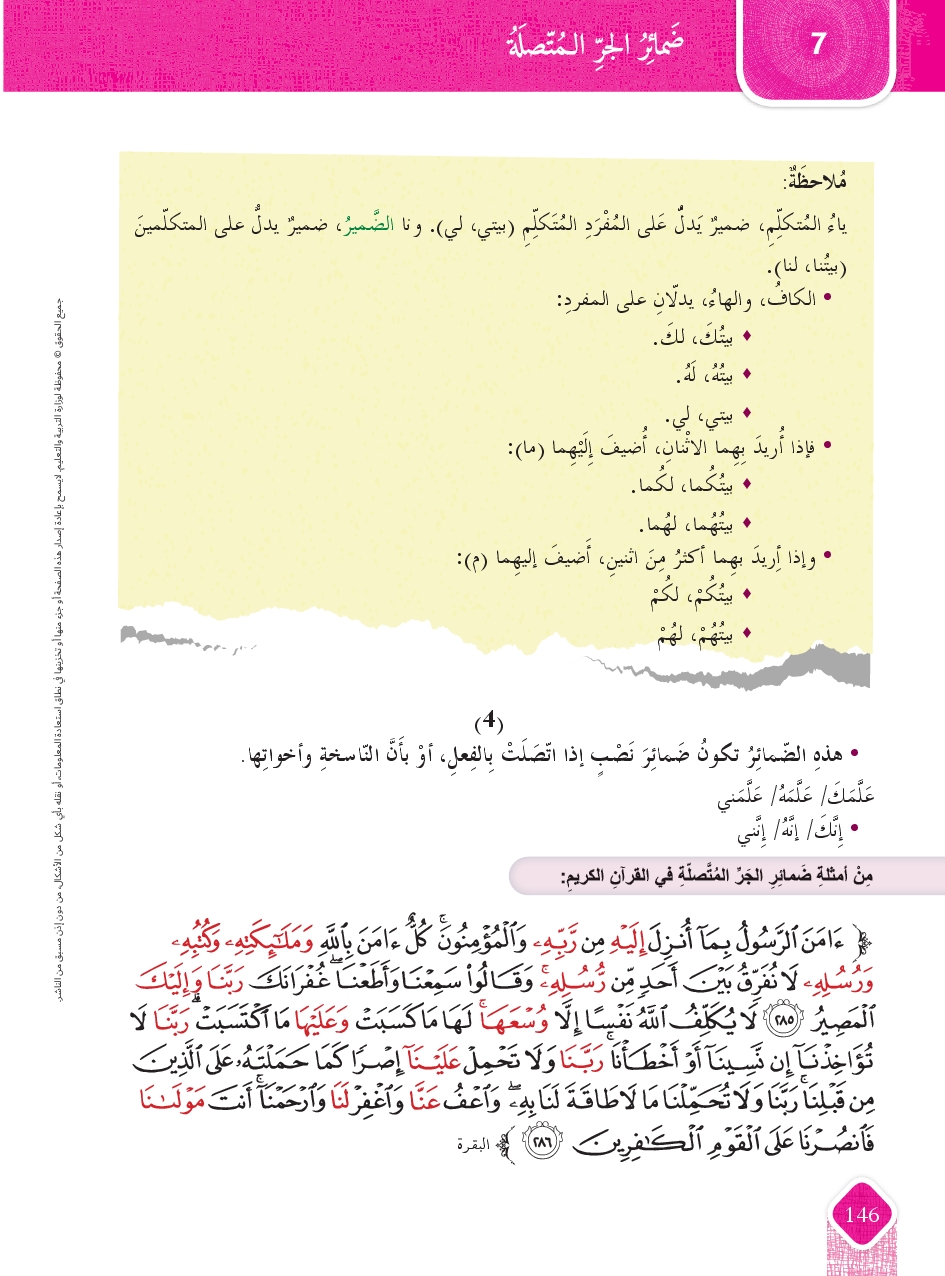 7
ضَمائرُ الجرِّ الـمُتّصلَةُ
مُلاحظَةٌ:
ياءُ المُتكلِّمِ، ضميرٌ يَدلُّ عَلى المُفْرَدِ المُتَكلِّمِ (بيتي، لي). و نا الضَّميرُ، ضميرٌ يدلُّ على المتكلّمينَ
(بيتُنا، لنا).
• الكافُ، والهاءُ، يدلّانِ على المفردِ:
♦ بيتُكَ، لكَ.
♦ بيتُهُ، لَهُ.
♦ بيتي، لي.
• فإذا أُريدَ بِهِما الاثْنانِ، أُضيفَ إِلَيْهِما (ما):
♦ بيتُكُما، لكُما.
♦ بيتُهُما، لهُما.
• وإذا أِريدَ بهِما أكثرُ مِنَ اثنينِ، أَضيفَ إليهِما (م):
♦ بيتُكُمْ، لكُمْ
♦ بيتُهُمْ، لهُمْ
(4)
• هذهِ الضّمائِرُ تكونُ ضَمائرَ نَصْبٍ إذا اتّصَلَتْ بِالفعلِ، أوْ بأَنَّ النّاسخةِ وأخواتِها.
عَلَّمَكَ/ عَلَّمَهُ/ عَلَّمَني
• إنَّكَ/ إنَّهُ/ إنَّني
مِنْ أمثلةِ ضَمائرِ الجَرِّ المُتَّصلّةِ في القرآنِ الكريمِ:
﴿ ءَامَنَ ٱلرَّسُولُ بِمَآ أُنزِلَ إِلَيْهِ مِن رَّبِّهِۦ وَٱلْمُؤْمِنُونَۚ كُلٌّ ءَامَنَ بِٱللَّهِ وَمَلَٰٓئِكَتِهِۦ وَكُتُبِهِۦ
وَرُسُلِهِۦ لَا نُفَرِّقُ بَيْنَ أَحَدٍ مِّن رُّسُلِهِۦۚ وَقَالُوا۟ سَمِعْنَا وَأَطَعْنَاۖ غُفْرَانَكَ رَبَّنَا وَإِلَيْكَ
ٱلْمَصِيرُ ٢٨٥ لَا يُكَلِّفُ ٱللَّهُ نَفْسًا إِلَّا وُسْعَهَاۚ لَهَا مَا كَسَبَتْ وَعَلَيْهَا مَا ٱكْتَسَبَتْۗ رَبَّنَا لَا
تُؤَاخِذْنَآ إِن نَّسِينَآ أَوْ أَخْطَأْنَاۚ رَبَّنَا وَلَا تَحْمِلْ عَلَيْنَآ إِصْرًا كَمَا حَمَلْتَهُۥ عَلَى ٱلَّذِينَ
مِن قَبْلِنَاۚ رَبَّنَا وَلَا تُحَمِّلْنَا مَا لَا طَاقَةَ لَنَا بِهِۦۖ وَٱعْفُ عَنَّا وَٱغْفِرْ لَنَا وَٱرْحَمْنَآۚ أَنتَ مَوْلَىٰنَا
فَٱنصُرْنَا عَلَى ٱلْقَوْمِ ٱلْكَٰفِرِينَ ٢٨٦ ﴾ البقرة
146
جميع الحقوق © محفوظة لوزارة التربية والتعليم. لايسمح بإعادة إصدار هذه الصفحة أو جزء منها أو تخزينها في نطاق استعادة المعلومات، أو نقله بأي شكل من الأشكال، من دون إذن مسبق من الناشر.